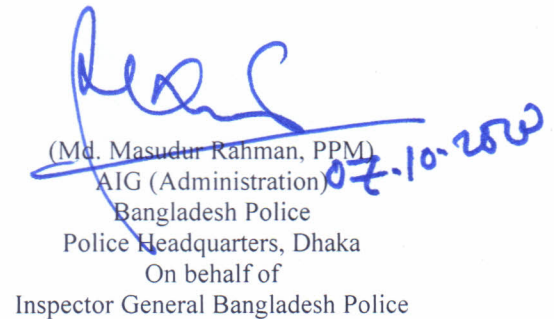 (Md. Masudur Rahman, PPM)
07.10.2020
AIG (Administration)
Bangladesh Police
Police Headquarters, Dhaka
On behalf of
Inspector General Bangladesh Police